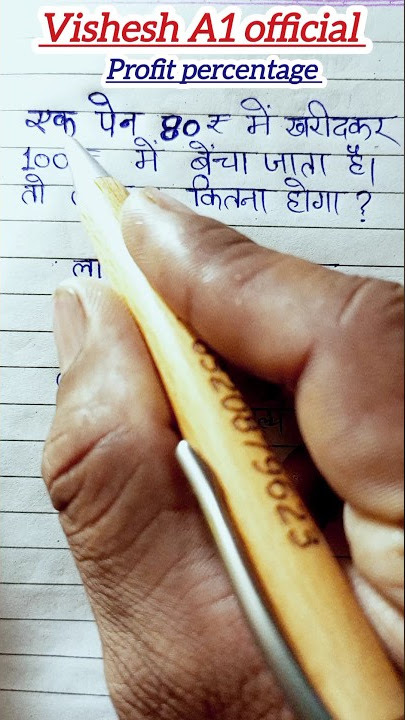 Vishesh A1 official
Profit percentage
एक पेन 80₹ में खरीदकर
100₹ में बेंचा जाता है।
तो कितना होगा ?
ला